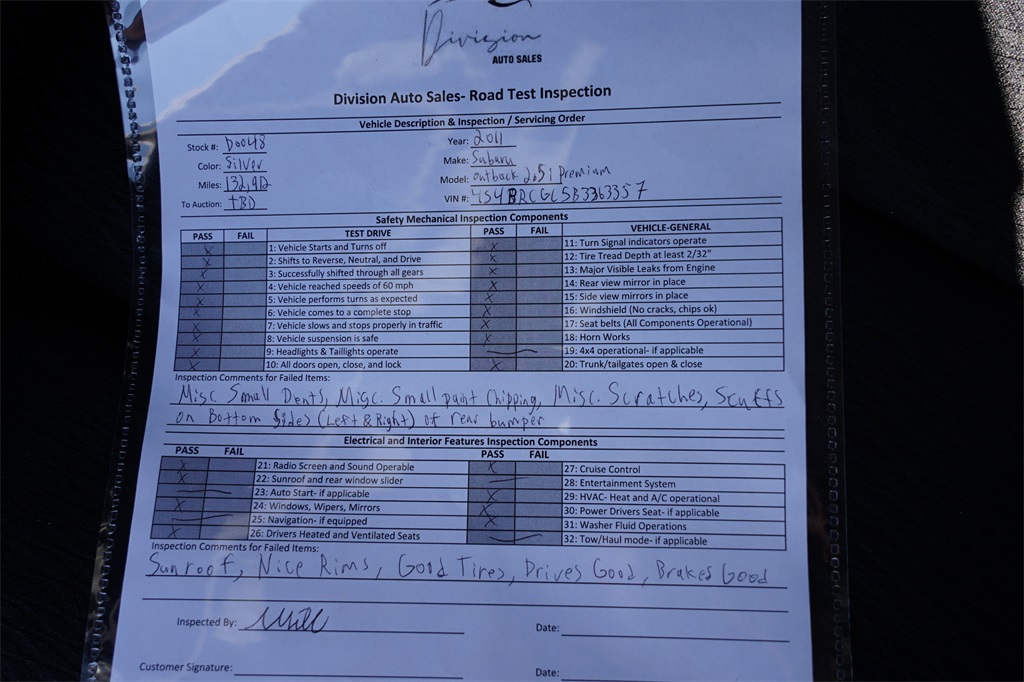 Division
AUTO SALES
Division Auto Sales- Road Test Inspection
Vehicle Description & Inspection / Servicing Order
Stock #: D0048 Year: 2011
Color: Silver Make: Subaru
Miles: 132,912 Model: Outback 2.5i Premium
To Auction: TBD VIN #: 4S4BRCGC5B3363357
Safety Mechanical Inspection Components
PASS FAIL TEST DRIVE PASS FAIL VEHICLE-GENERAL
X 1: Vehicle Starts and Turns off X 11: Turn Signal indicators operate
X 2: Shifts to Reverse, Neutral, and Drive X 12: Tire Tread Depth at least 2/32"
X 3: Successfully shifted through all gears X 13: Major Visible Leaks from Engine
X 4: Vehicle reached speeds of 60 mph X 14: Rear view mirror in place
X 5: Vehicle performs turns as expected X 15: Side view mirrors in place
X 6: Vehicle comes to a complete stop X 16: Windshield (No cracks, chips ok)
X 7: Vehicle slows and stops properly in traffic X 17: Seat belts (All Components Operational)
X 8: Vehicle suspension is safe X 18: Horn Works
X 9: Headlights & Taillights operate 19: 4x4 operational- if applicable
X 10: All doors open, close, and lock X 20: Trunk/tailgates open & close
Inspection Comments for Failed Items:
Misc. Small Dents, Misc. Small paint Chipping, Misc. Scratches, Scuffs
on Bottom Sides (Left & Right) of rear bumper
Electrical and Interior Features Inspection Components
PASS FAIL PASS FAIL
X 21: Radio Screen and Sound Operable X 27: Cruise Control
X 22: Sunroof and rear window slider 28: Entertainment System
23: Auto Start- if applicable X 29: HVAC- Heat and A/C operational
X 24: Windows, Wipers, Mirrors X 30: Power Drivers Seat- if applicable
25: Navigation- if equipped X 31: Washer Fluid Operations
X 26: Drivers Heated and Ventilated Seats 32: Tow/Haul mode- if applicable
Inspection Comments for Failed Items:
Sunroof, Nice Rims, Good Tires, Drives Good, Brakes Good
Inspected By: Date:
Customer Signature: Date: